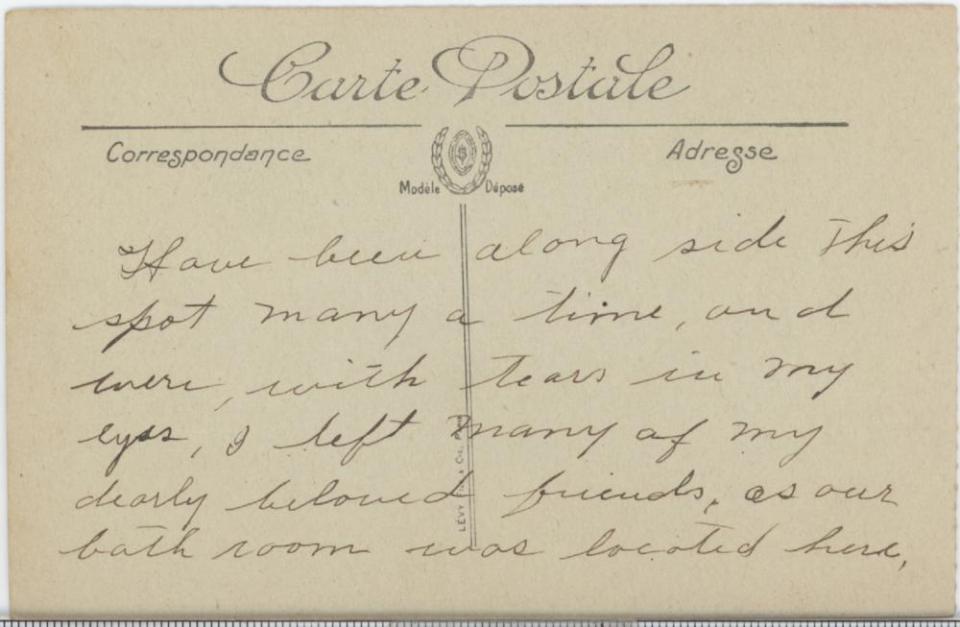 Carte Postale
Correspondance
Adresse
Modèle Déposé
Have been along side this
spot many a time, and
were, with tears in my
eyes, I left many of my
dearly beloved friends, as our
bath room was located here.
LÉVY & Cie,